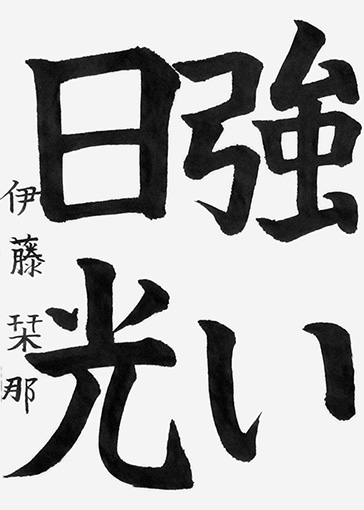 強い
日光
伊藤栞那